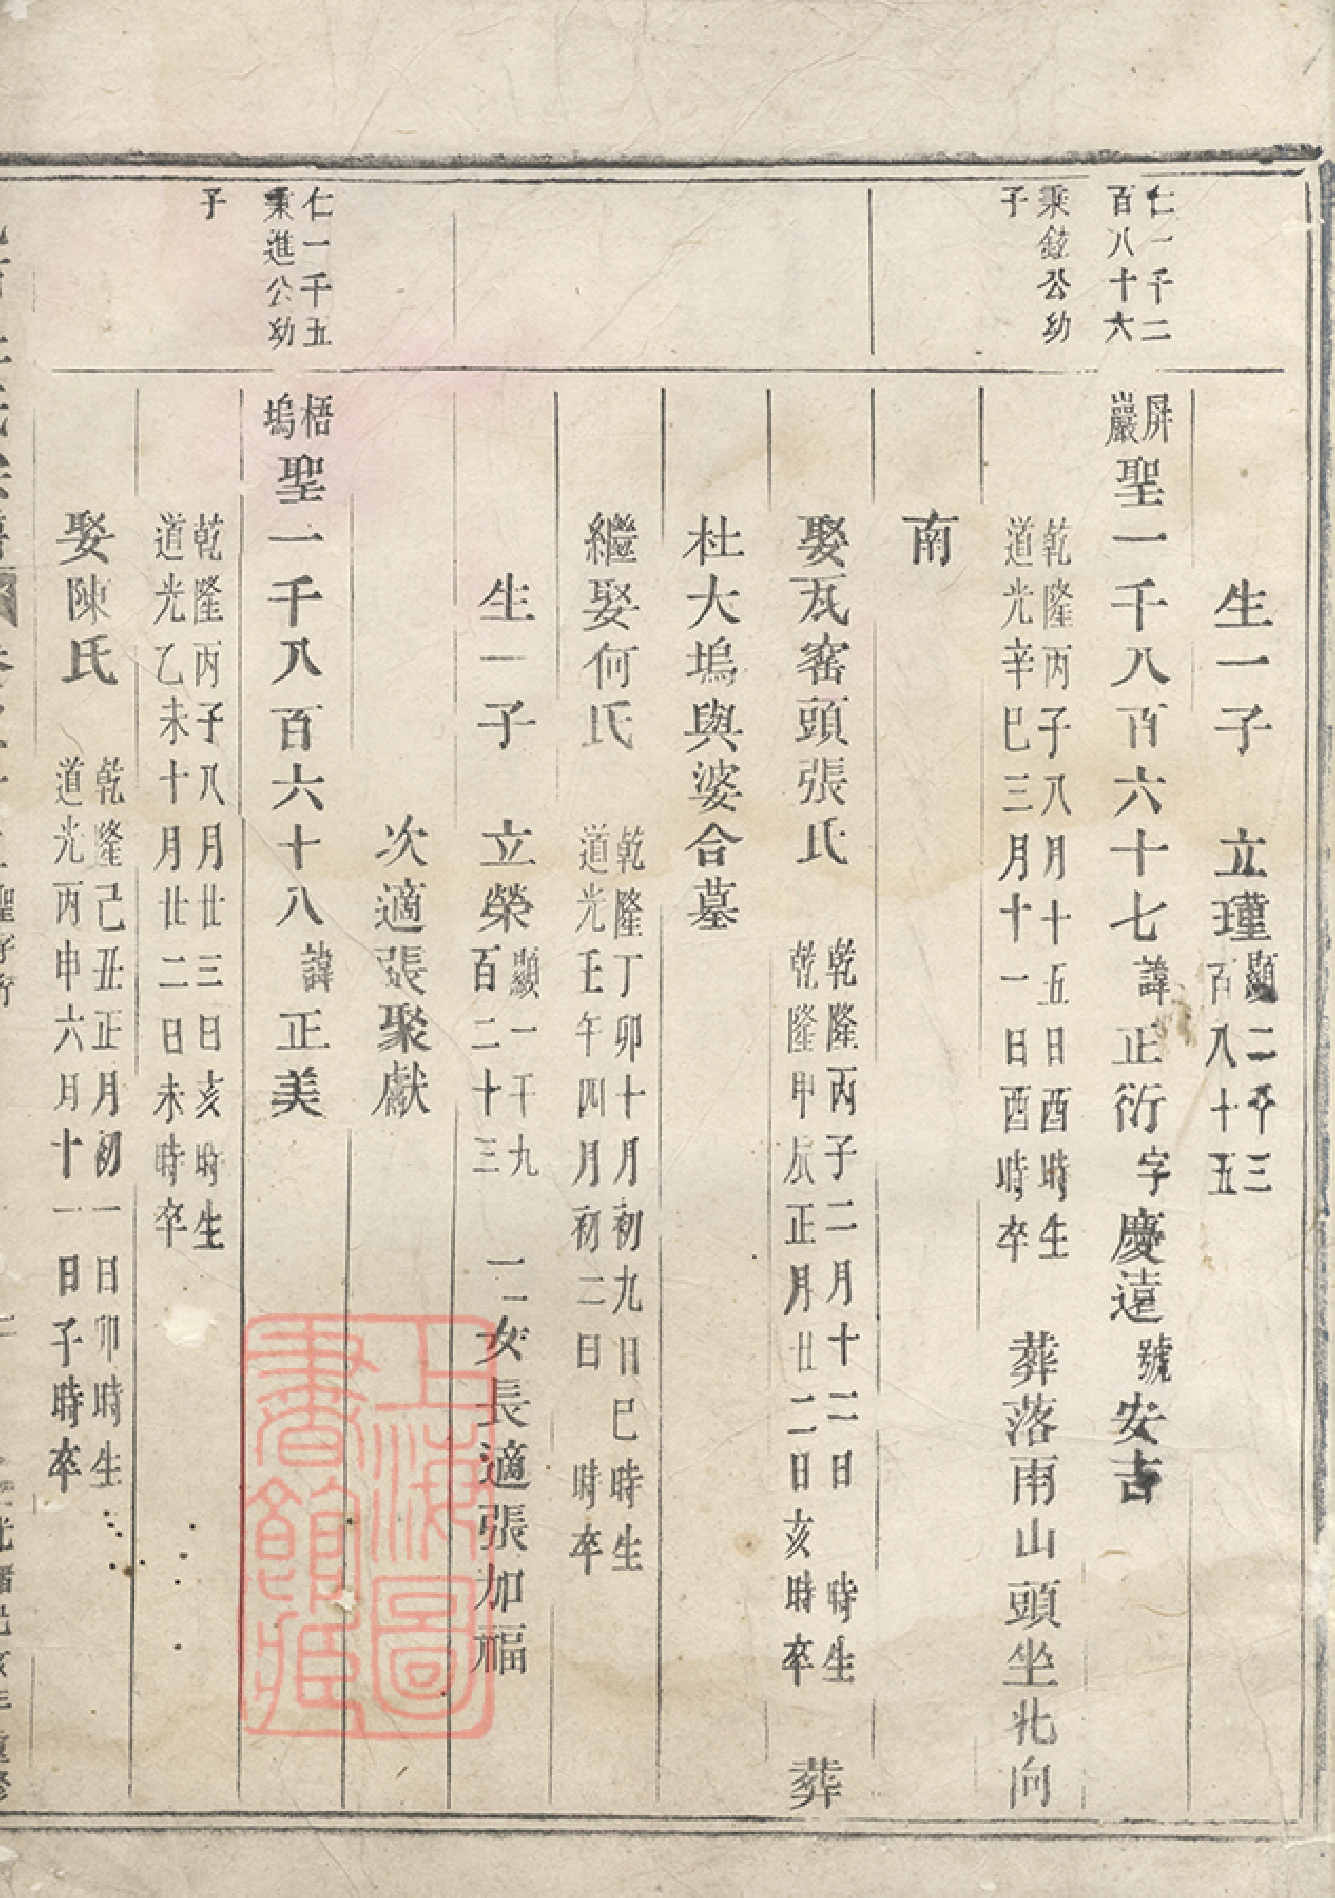 生一子　立瑾顯二千三百八十五
仁一千二百八十六
秉鋐公幼子
屏巖聖一千八百六十七諱正衍字慶遠號安吉
乾隆丙子八月十五日酉時生
道光辛巳三月十一日酉時卒
葬落南山頭坐北向
南
娶瓦窰頭張氏
乾隆丙子二月十二日　時生
乾隆甲辰正月廿二日亥時卒
葬
杜大塢與婆合墓
繼娶何氏
乾隆丁卯十月初九日巳時生
道光壬午四月初二日　時卒
生一子　立榮顯一千九百二十三　二女長適張加福
次適張聚獻
仁一千五
秉進公幼子
梧塢聖一千八百六十八諱正美
乾隆丙子八月廿三日亥時生
道光乙未十月廿二日未時卒
娶陳氏
乾隆己丑正月初一日卯時生
道光丙申六月十一日子時卒
上海圖書館藏